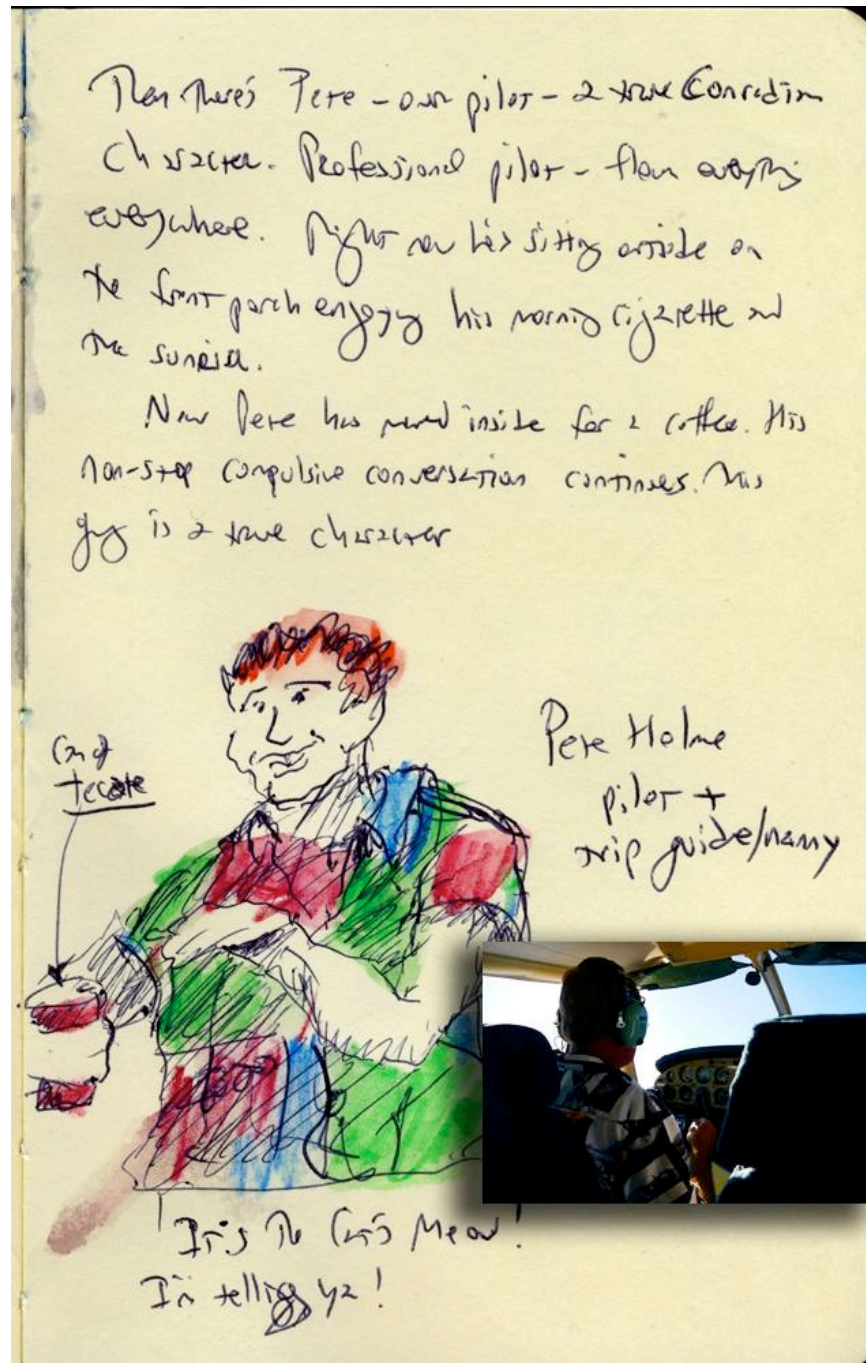 Then there's Pete - our pilot - a true Conradian
character. Professional pilot - flown everything
everywhere. Right now he's sitting outside on
the front porch enjoying his morning cigarette and
the sunrise.
Now Pete has moved inside for a coffee. His
non-stop compulsive conversation continues. This
guy is a true character
Can of
Tecate
Pete Holme
pilot +
trip guide/nanny
It's The Cat's Meow!
I'm telling ya!